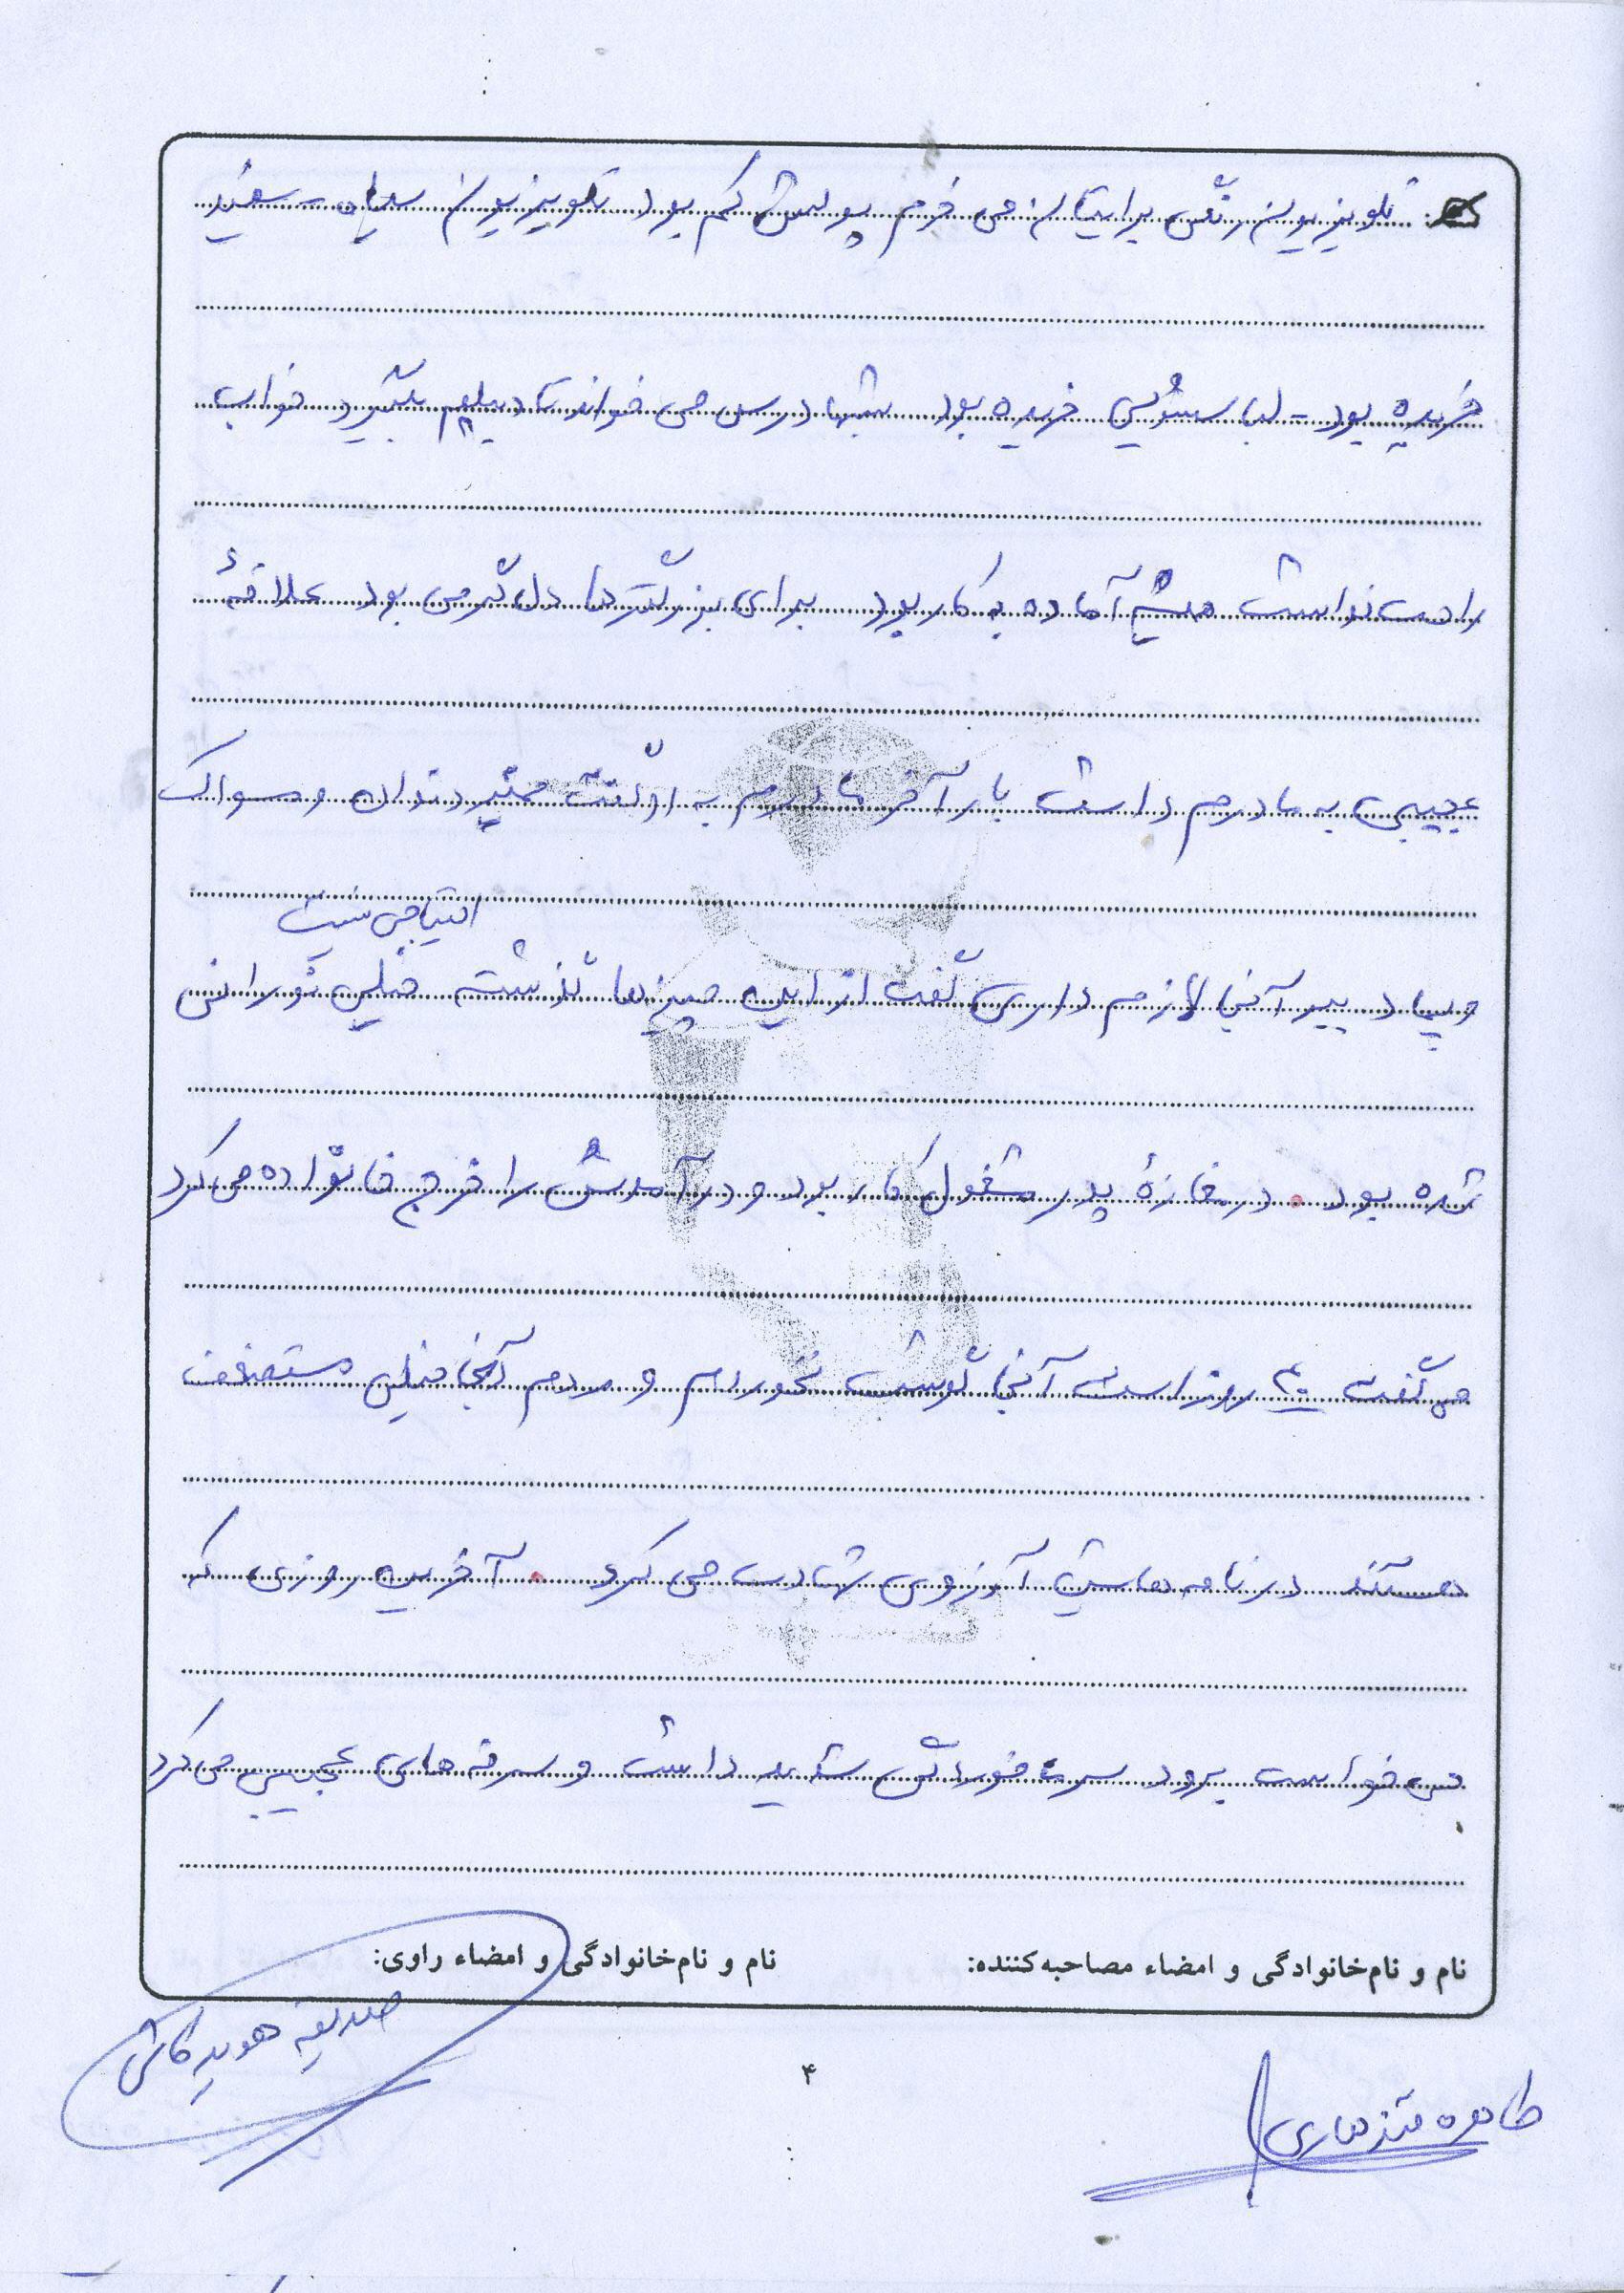 تلویزیون رنگی برایتان می خرم پولش کم بود تلویزیون سیاه - سفید
خریده بود - لباسشویی خریده بود شبها درس می خواند تا دیپلم بگیرد خواب
راحت نداشت همیشه آماده به کار بود برای بزرگترها دل گرمی بود علاقهٔ
عجیبی به مادرم داشت بار آخر مادرم به او گفت خمیر دندان و مسواک
احتیاجی نیست
و بیا د ببر آنجا لازم داری گفت از این چیزها گذشته خیلی نورانی
شده بود. در مغازهٔ پدر مشغول کار بود و درآمدش را خرج خانواده می کرد
می گفت ۴۰ روز است آنجا گوشت نخوردم و مردم آنجا خیلی مستضعف
هستند در نامه هایش آرزوی شهادت می کرد. آخرین روزی که
می خواست برود سرما خوردگی شدید داشت و سرفه های عجیبی می کرد
نام و نام‌خانوادگی و امضاء مصاحبه‌کننده: نام و نام‌خانوادگی و امضاء راوی:
صدیقه هوید کاشی
۴
طاهره قندهاری